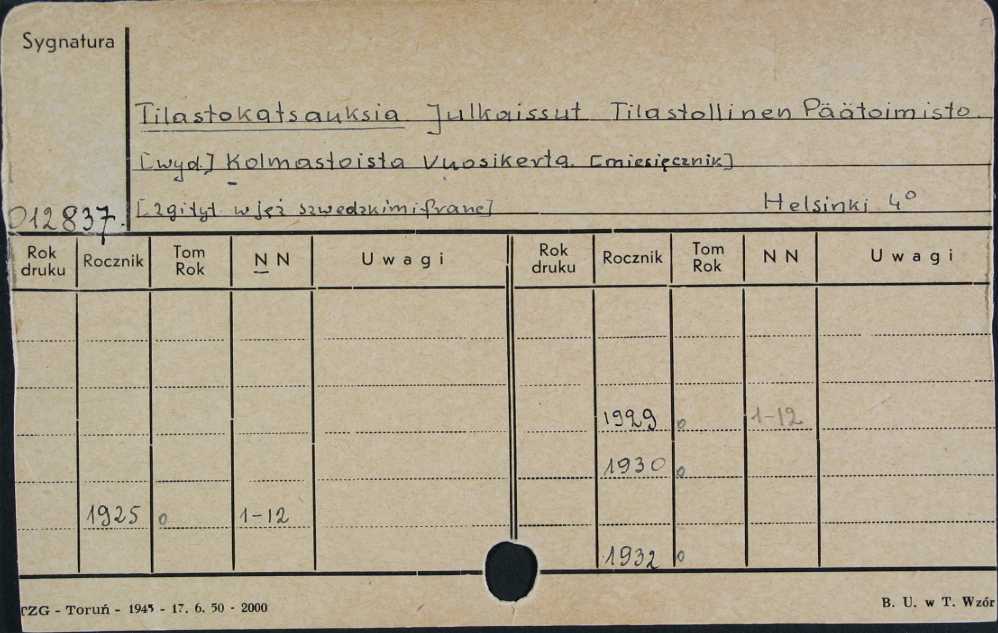 Sygnatura
Tilastokatsauksia Julkaissut Tilastollinen Päätoimisto.
[wyd.] Kolmastoista Vuosikerta. [miesięcznik]
012837. [zgityt w jęz szwedzkim i franc] Helsinki 4°
Rok druku Rocznik Tom Rok N N Uwagi Rok druku Rocznik Tom Rok N N Uwagi
1929 o 1-12
1930 o
1925 o 1-12
1932 o
TZG - Toruń - 1945 - 17. 6. 50 - 2000 B. U. w T. Wzór